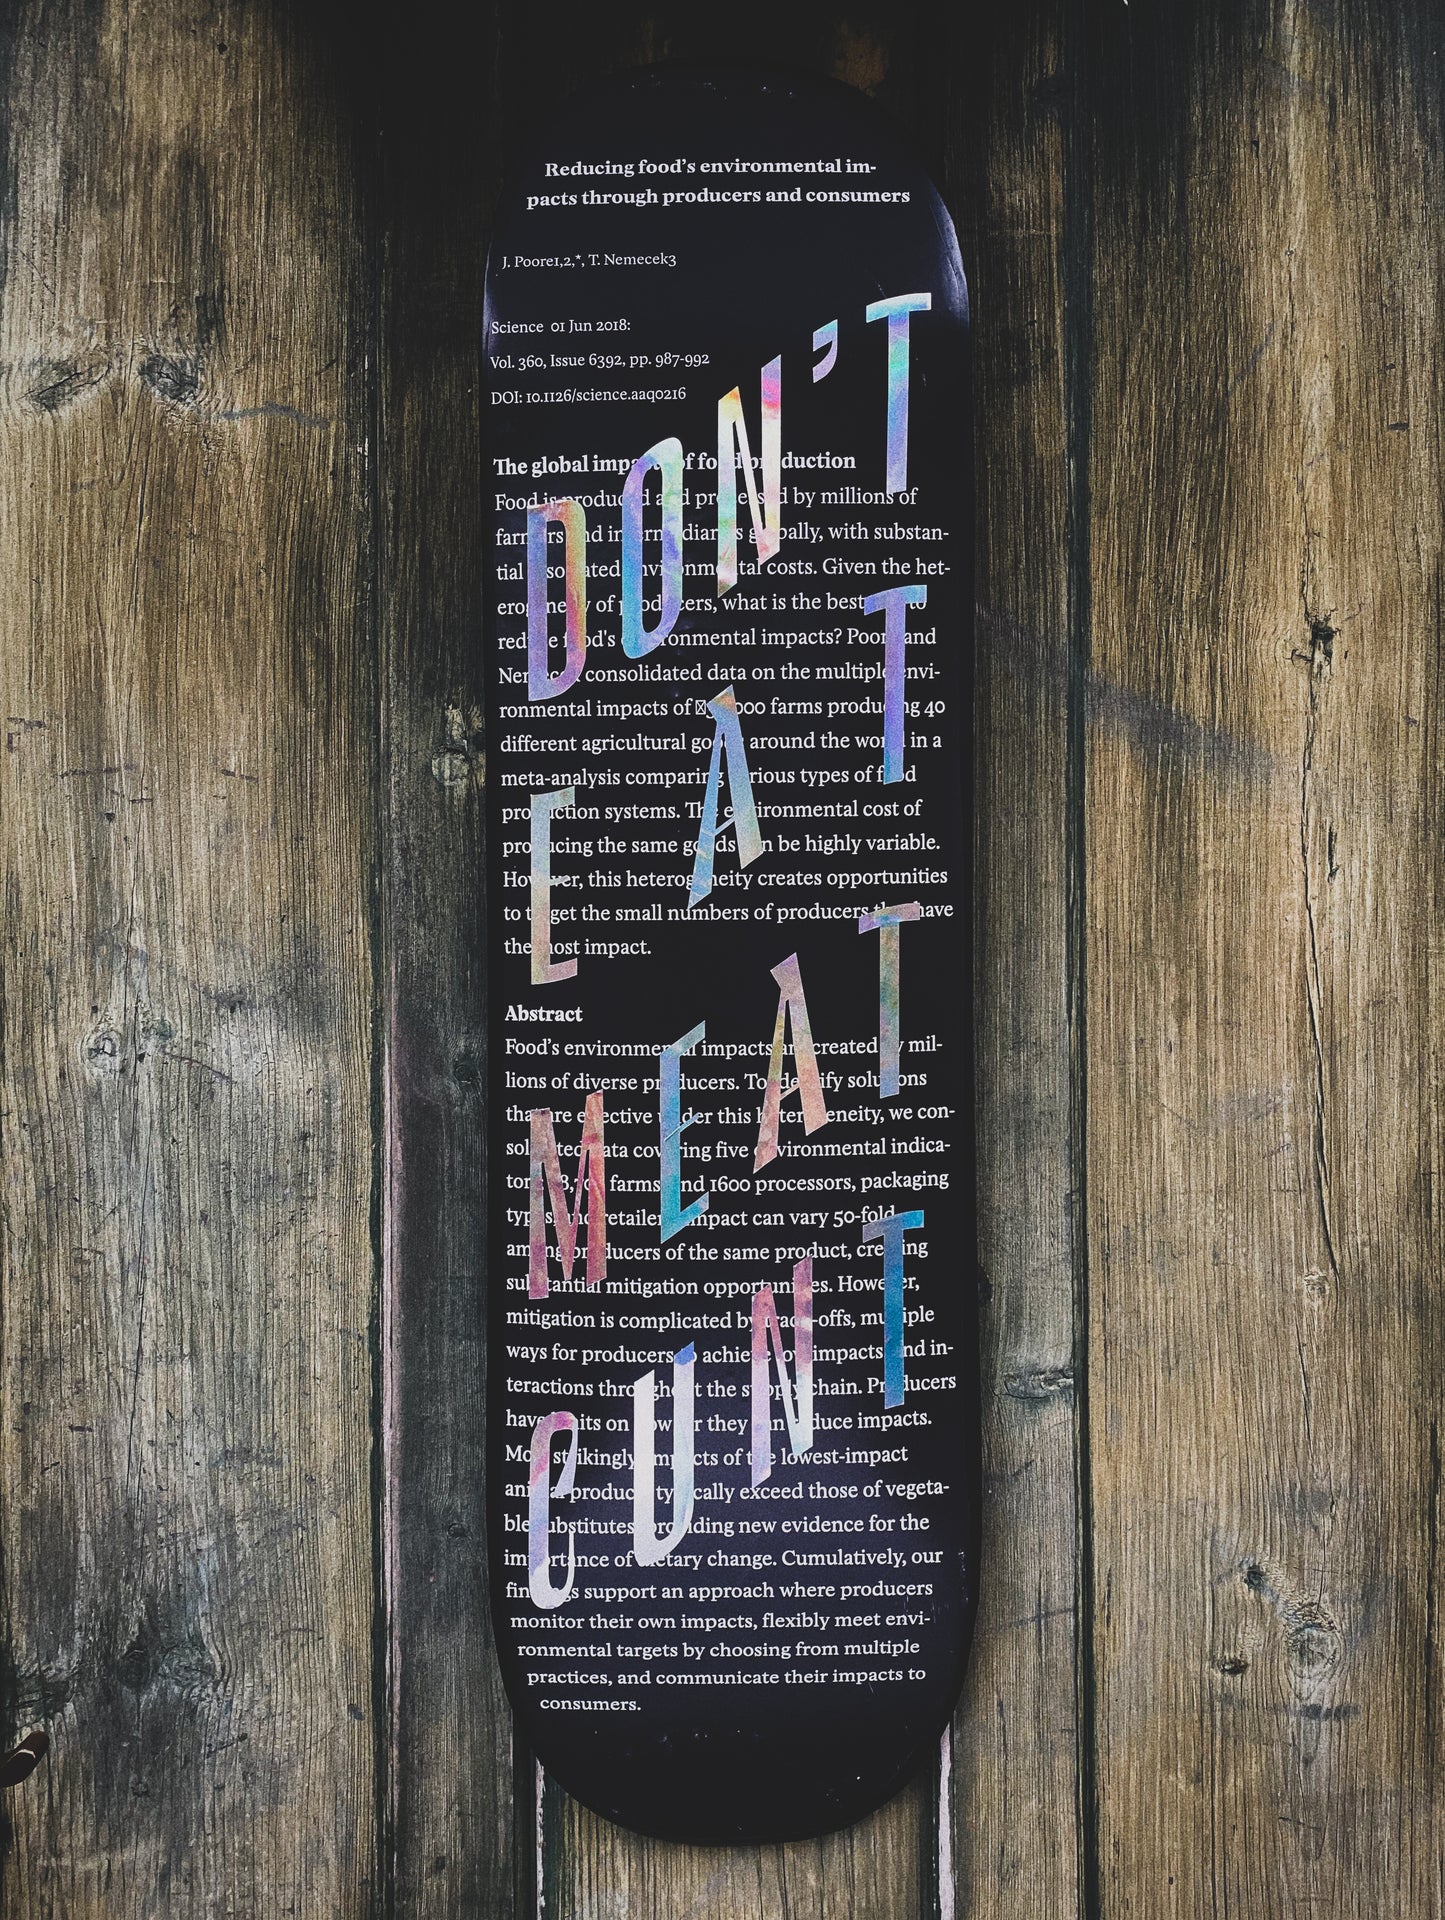 Reducing food's environmental im-
pacts through producers and consumers
J. Poore1,2,*, T. Nemecek3
Science 01 Jun 2018:
Vol. 360, Issue 6392, pp. 987-992
DOI: 10.1126/science.aaq0216
DON'T
EAT
MEAT
CUNT
The global impacts of food production
Food is produced and processed by millions of
farmers and intermediaries globally, with substan-
tial associated environmental costs. Given the het-
erogeneity of producers, what is the best to
reduce food's environmental impacts? Poore and
Nemecek consolidated data on the multiple envi-
ronmental impacts of farms producing 40
different agricultural goods around the world in a
meta-analysis comparing various types of food
production systems. The environmental cost of
producing the same goods can be highly variable.
However, this heterogeneity creates opportunities
to target the small numbers of producers that have
the most impact.
Abstract
Food's environmental impacts are created by mil-
lions of diverse producers. To identify solutions
that are effective under this heterogeneity, we con-
solidated data covering five environmental indica-
tors; farms and 1600 processors, packaging
types, and retailers. Impact can vary 50-fold
among producers of the same product, creating
substantial mitigation opportunities. However,
mitigation is complicated by trade-offs, multiple
ways for producers to achieve low impacts, and in-
teractions throughout the supply chain. Producers
have limits on how far they can reduce impacts.
Most strikingly, impacts of the lowest-impact
animal products typically exceed those of vegeta-
ble substitutes, providing new evidence for the
importance of dietary change. Cumulatively, our
findings support an approach where producers
monitor their own impacts, flexibly meet envi-
ronmental targets by choosing from multiple
practices, and communicate their impacts to
consumers.